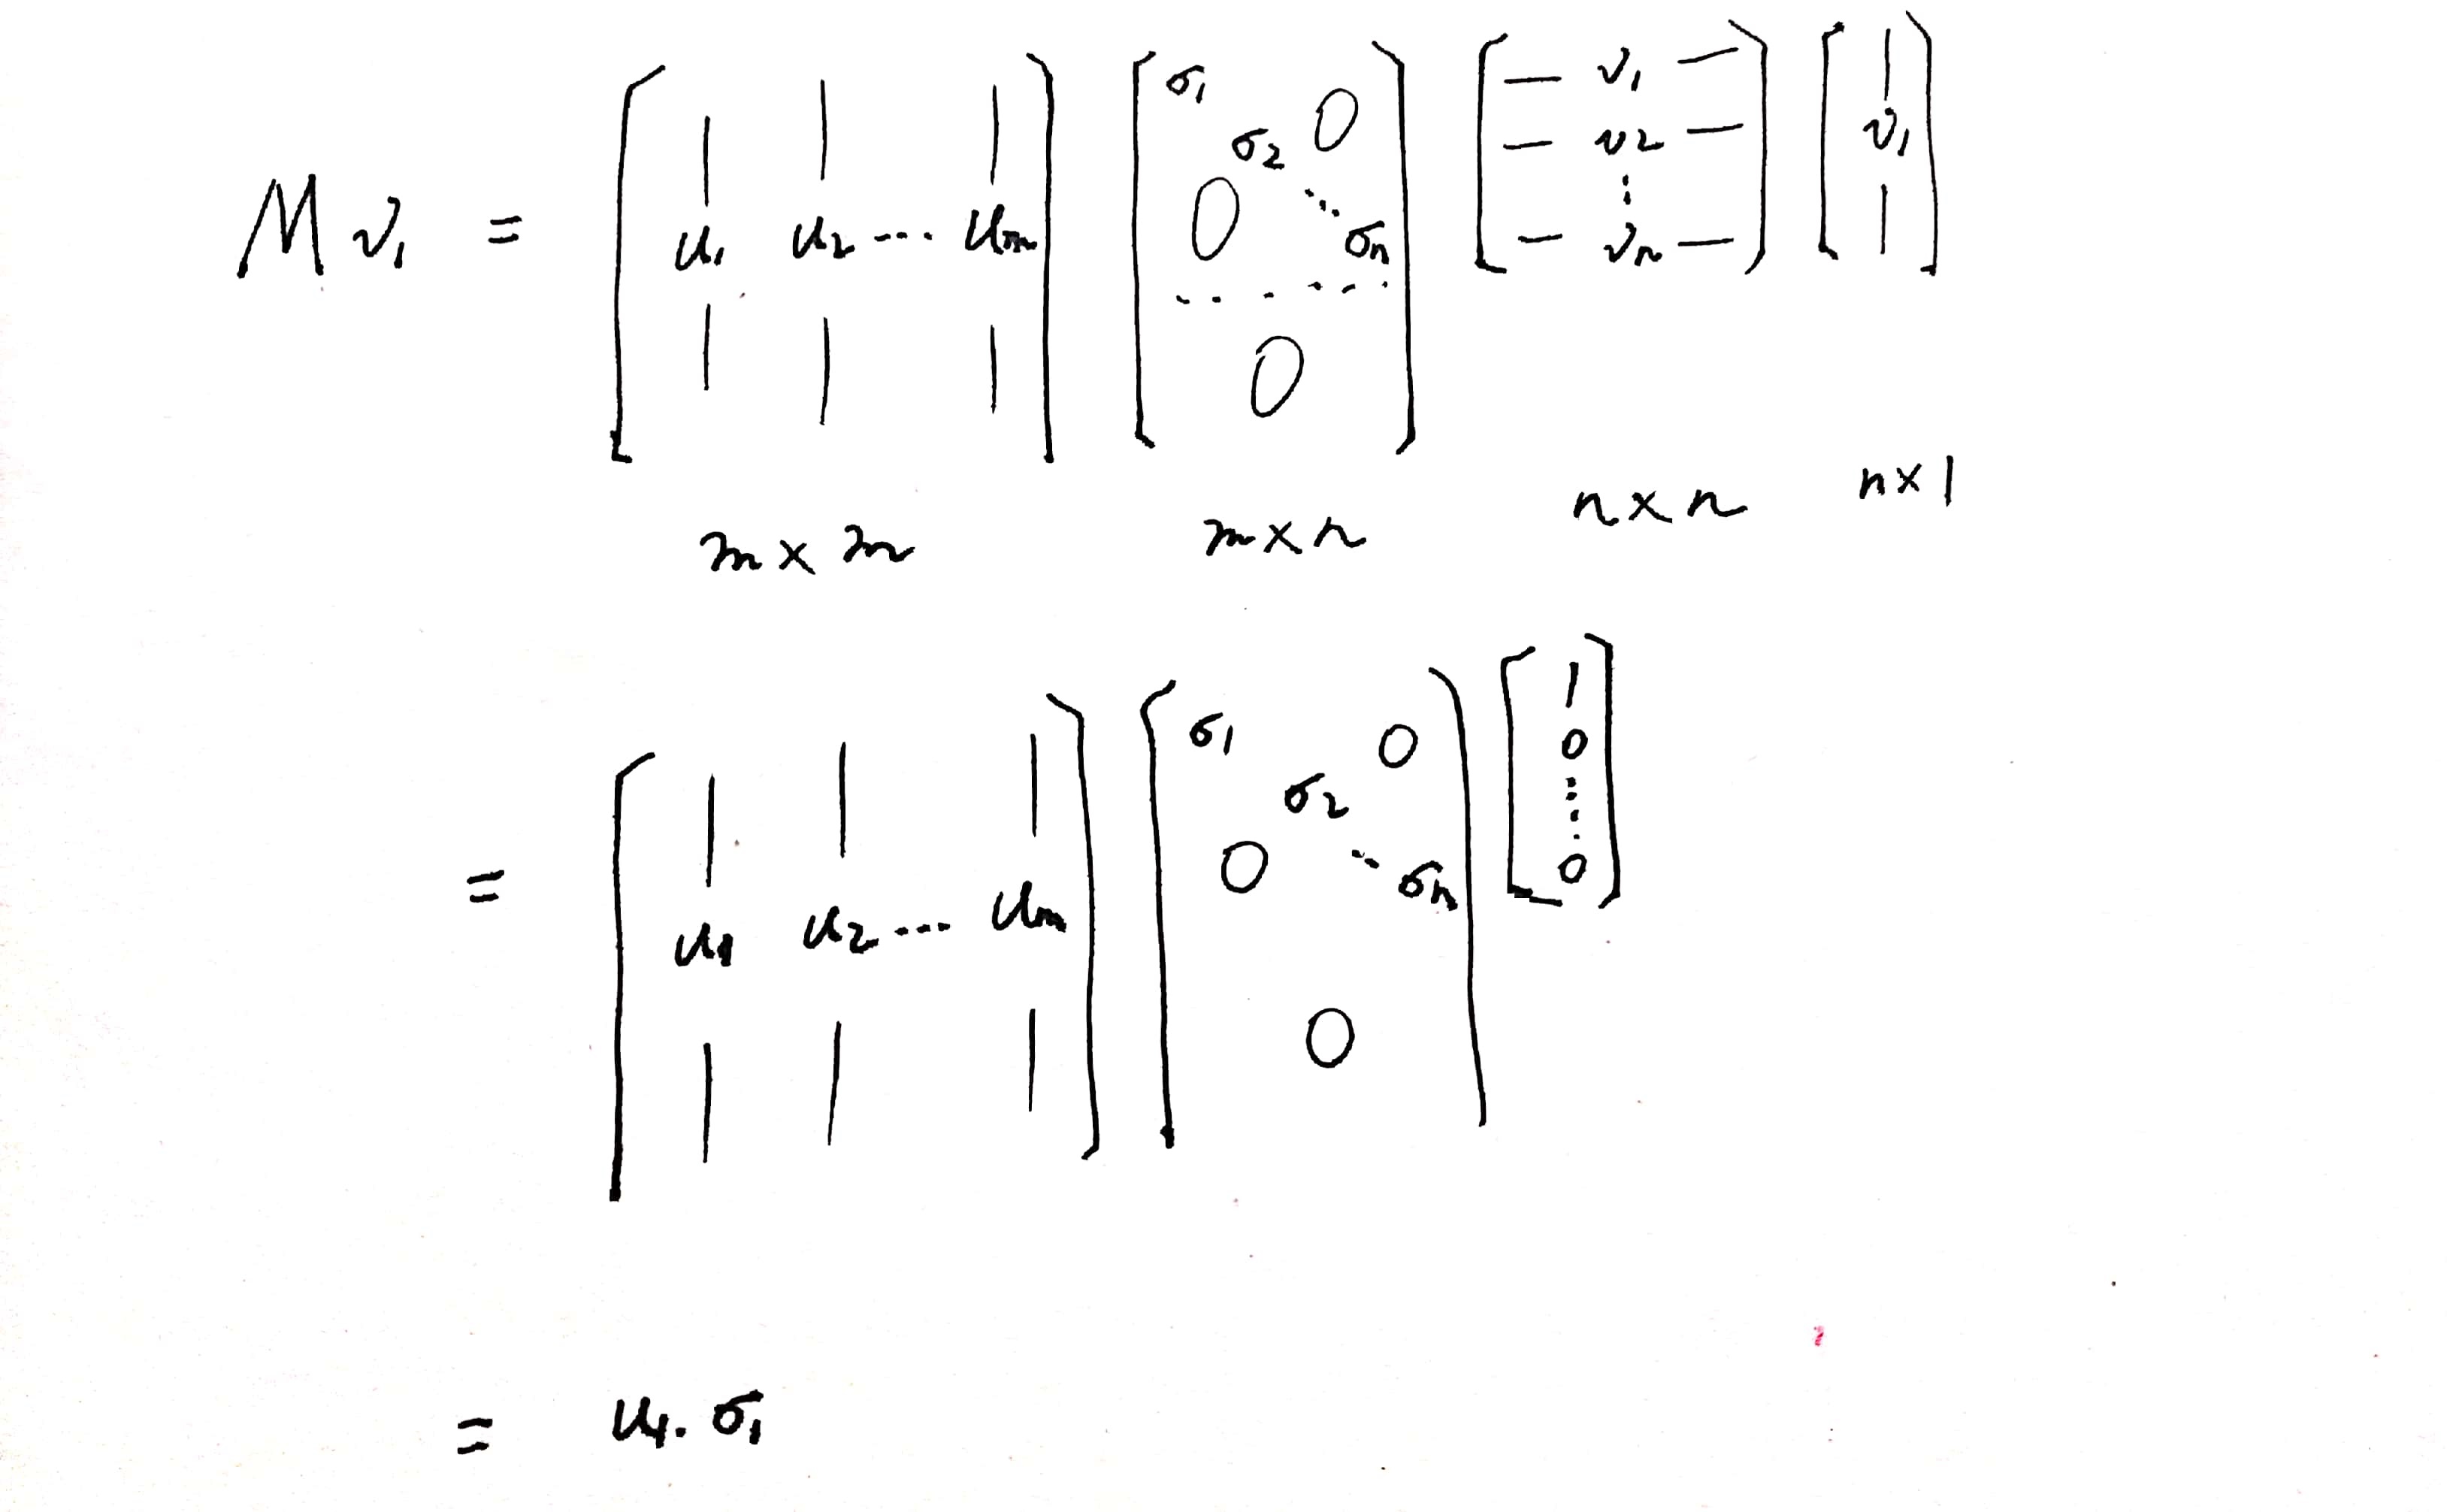 M v₁ = [ | | | u₁ u₂ ... uₘ | | | ] [ σ₁ 0 σ₂ 0 ⋱ σₙ ...... 0 ] [ — v₁ — — v₂ — ⋮ — vₙ — ] [ | v₁ | ]
m × m m × n n × n n × 1
= [ | | | u₁ u₂ ... uₘ | | | ] [ σ₁ 0 σ₂ 0 ⋱ σₙ 0 ] [ 1 0 ⋮ 0 ]
= u₁ · σ₁